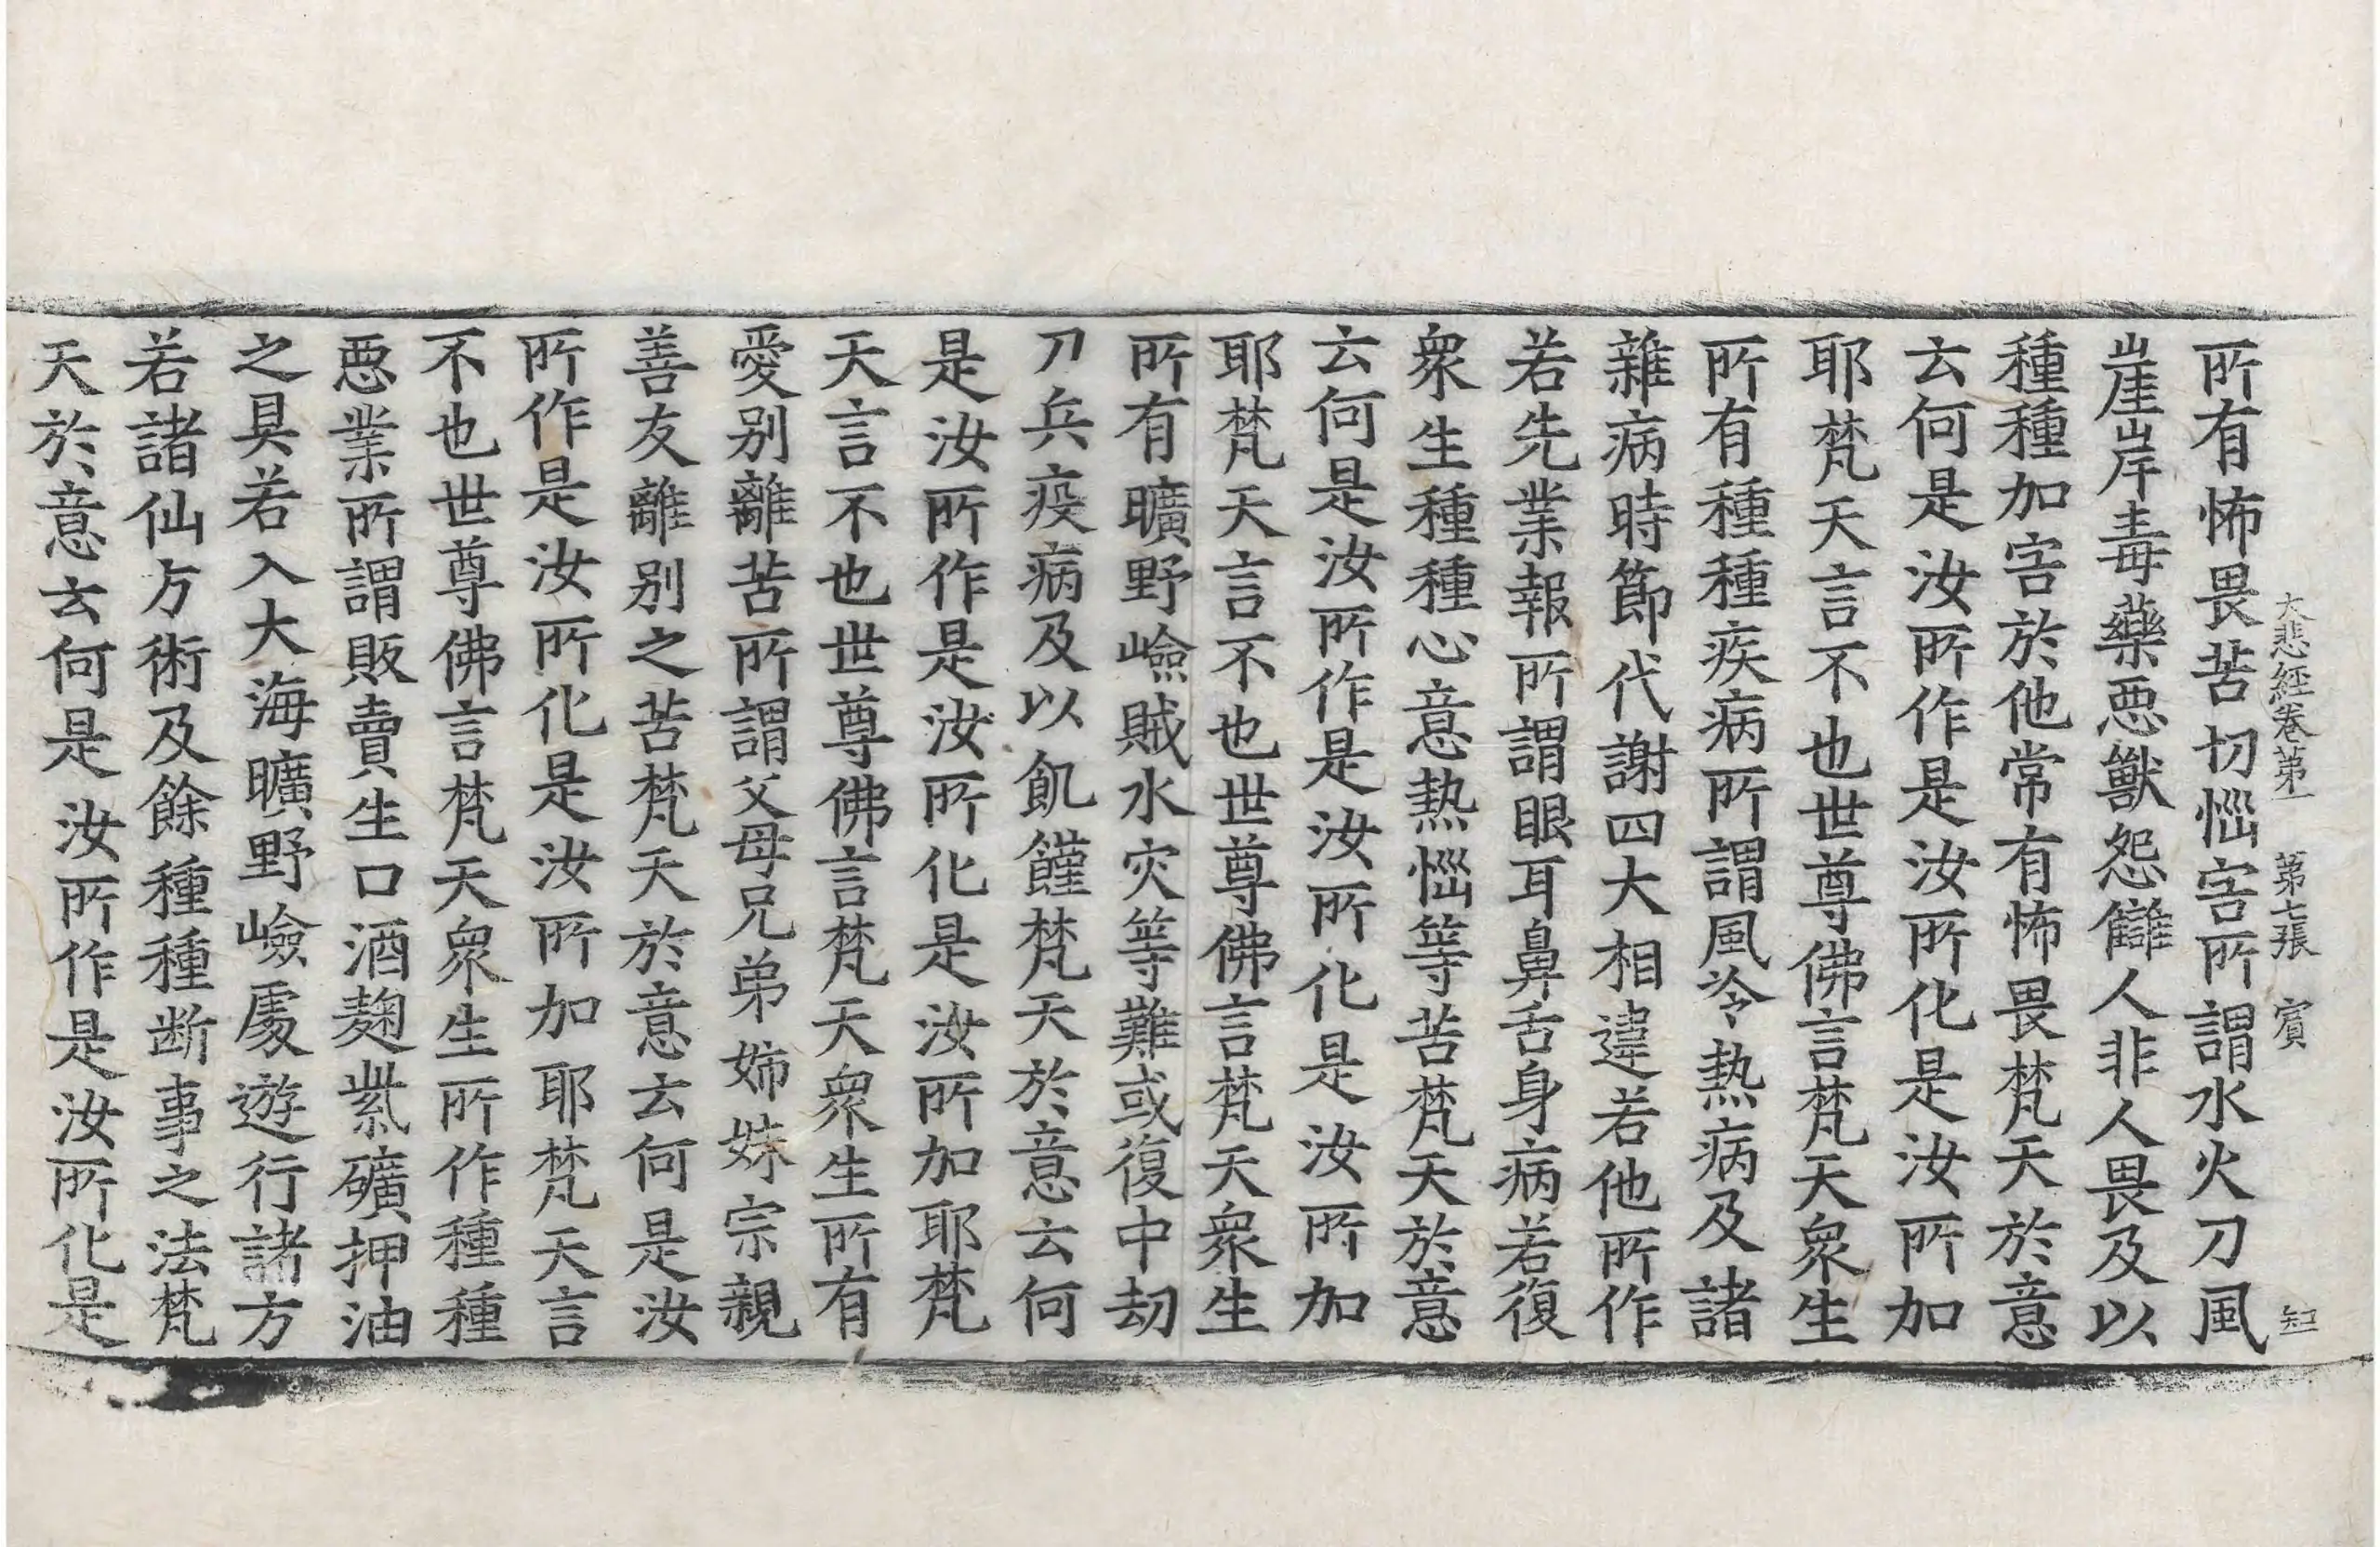 大悲經卷第一 第七張 賓 知
所有怖畏苦切惱害所謂水火刀風
崖岸毒藥惡獸怨讎人非人畏及以
種種加害於他常有怖畏梵天於意
云何是汝所作是汝所化是汝所加
耶梵天言不也世尊佛言梵天衆生
所有種種疾病所謂風冷熱病及諸
雜病時節代謝四大相違若他所作
若先業報所謂眼耳鼻舌身病若復
衆生種種心意熱惱等苦梵天於意
云何是汝所作是汝所化是汝所加
耶梵天言不也世尊佛言梵天衆生
所有曠野嶮賊水灾等難或復中劫
刀兵疫病及以飢饉梵天於意云何
是汝所作是汝所化是汝所加耶梵
天言不也世尊佛言梵天衆生所有
愛別離苦所謂父母兄弟姊妹宗親
善友離別之苦梵天於意云何是汝
所作是汝所化是汝所加耶梵天言
不也世尊佛言梵天衆生所作種種
惡業所謂販賣生口酒麴紫礦押油
之具若入大海曠野嶮處遊行諸方
若諸仙方術及餘種種断事之法梵
天於意云何是汝所作是汝所化是